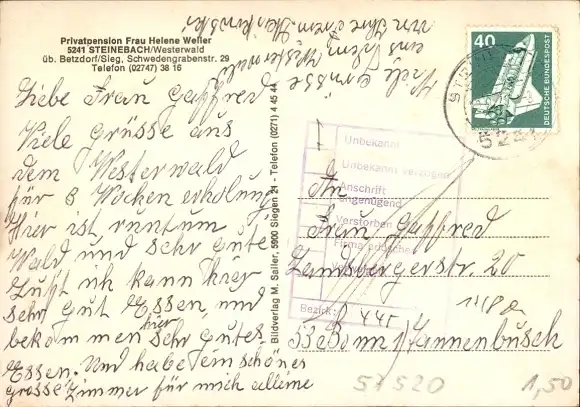 Privatpension Frau Helene Weller
5241 STEINEBACH/Westerwald
üb. Betzdorf/Sieg, Schwedengrabenstr. 29
Telefon (02747) 38 16
Liebe Frau Gaffred
Viele grüsse aus
dem Westerwald
für 3 Wochen erholung
Hier ist runtum
Wald und sehr gute
Luft ich kann hier
sehr gut Essen, und
bekommen hier sehr gutes
Essen. Und habe ein schönes
grosse Zimmer für mich alleine
Viele grüsse
aus dem Westerwald
von Ihre
Bildverlag M. Sailer, 5900 Siegen 21 - Telefon (0271) 4 45 44
40
DEUTSCHE BUNDESPOST
Unbekannt
Unbekannt verzogen
Anschrift
ungenügend
Verstorben
Firma erloschen
Bezirk:
An
Frau Gaffred
Landsbergerstr. 20
53 Bonn 1 Tannenbusch
53520
1,50